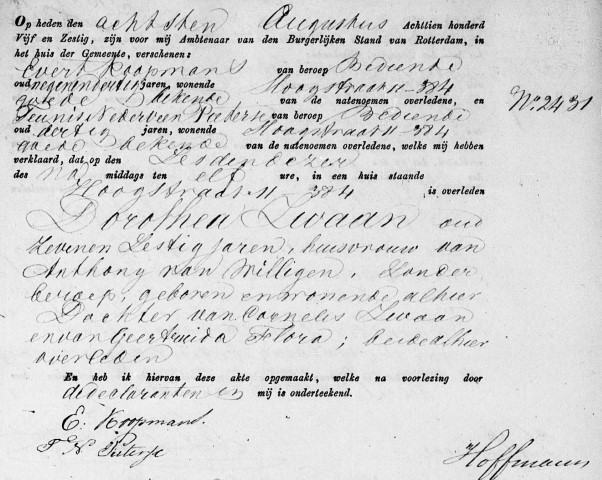 Op heden den achtsten Augustus Achttien honderd
Vijf en Zestig, zijn voor mij Ambtenaar van den Burgerlijken Stand van Rotterdam, in
het huis der Gemeente, verschenen:
Evert Koopmans van beroep Bediende
oud negenendertig jaren, wonende Hoogstraat 11-384
goede bekende van de natenoemen overledene, en No 2431
Teunis Nederveen Pieterse van beroep Bediende
oud dertig jaren, wonende Hoogstraat 11-384
goede bekende van de natenoemen overledene, welke mij hebben
verklaard, dat op den Zesden dezer
des na middags ten elf ure, in een huis staande
Hoogstraat 11-384 is overleden
Dorothea Zwaan oud
zevenen Zestig jaren, huisvrouw van
Anthony van Willigen, zonder
beroep, geboren en wonende alhier
Dochter van Cornelis Zwaan
en van Geertruida Flora; beide alhier
overleden
En heb ik hiervan deze akte opgemaakt, welke na voorlezing door
de declaranten en mij is onderteekend.
E. Koopmans.
T N Pieterse
Hoffmann